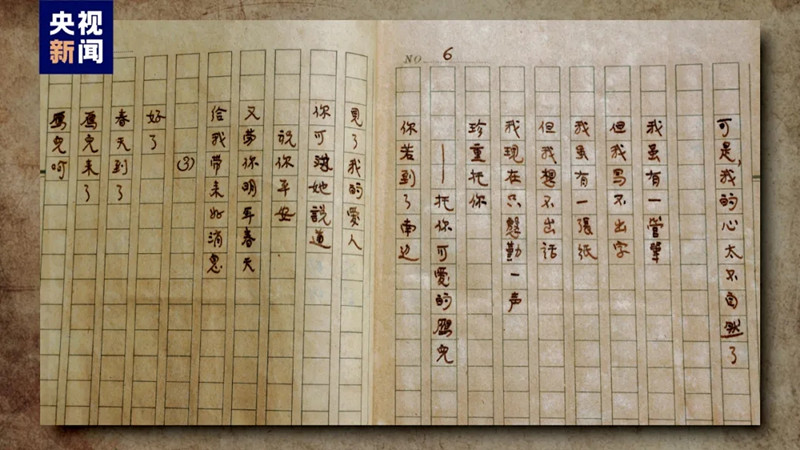 央视
新闻
NO 6
可是,我的心太不自然了
我虽有一管筆
但我写不出字
我虽有一張紙
但我想不出話
我現在只慇勤一声
珍重托你
——托你可愛的鴈兒
你若到了南边
見了我的愛人
你可對她說道
說你平安
又勞你明年春天
给我带来好消息
(3)
好了
春天到了
鴈兒来了
鴈兒呵